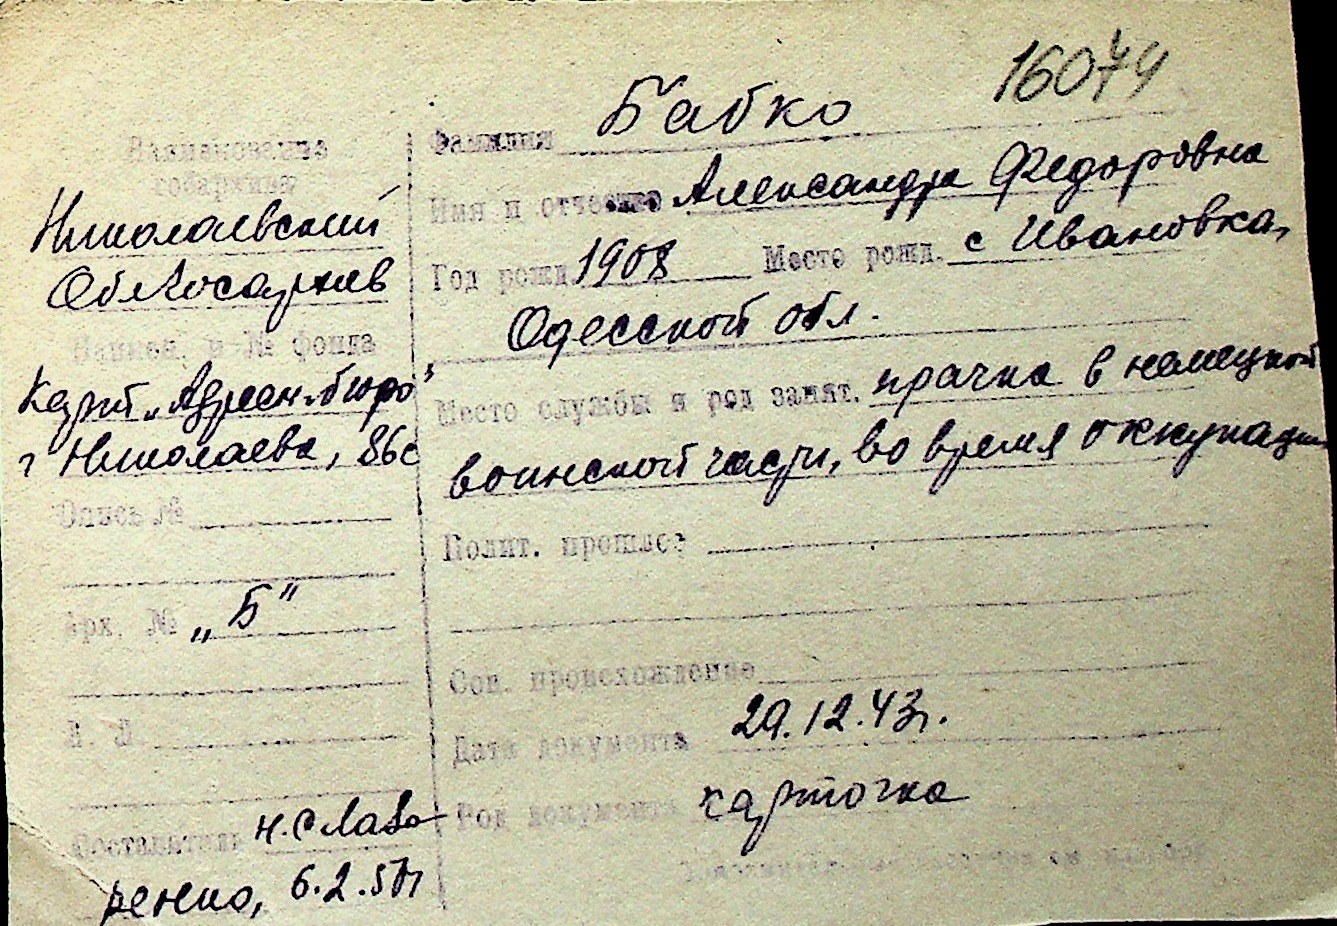 16074
Наименование
госархива
Николаевский
Облгосархив
Наимен. и № фонда
Карт. „Адресн. бюро"
г Николаева, 86с
Опись №
Арх. № „Б"
Л. Л.
Составитель н. слав
ренко, 6.2.50г
Фамилия Бабко
Имя и отчество Александра Федоровна
Год рожд. 1908 Место рожд. с Ивановка,
Одесской обл.
Место службы и род занят. прачка в немецкой
воинской части, во время оккупации
Полит. прошлое
Соц. происхождение
Дата документа 29.12.43г.
Род документа карточка